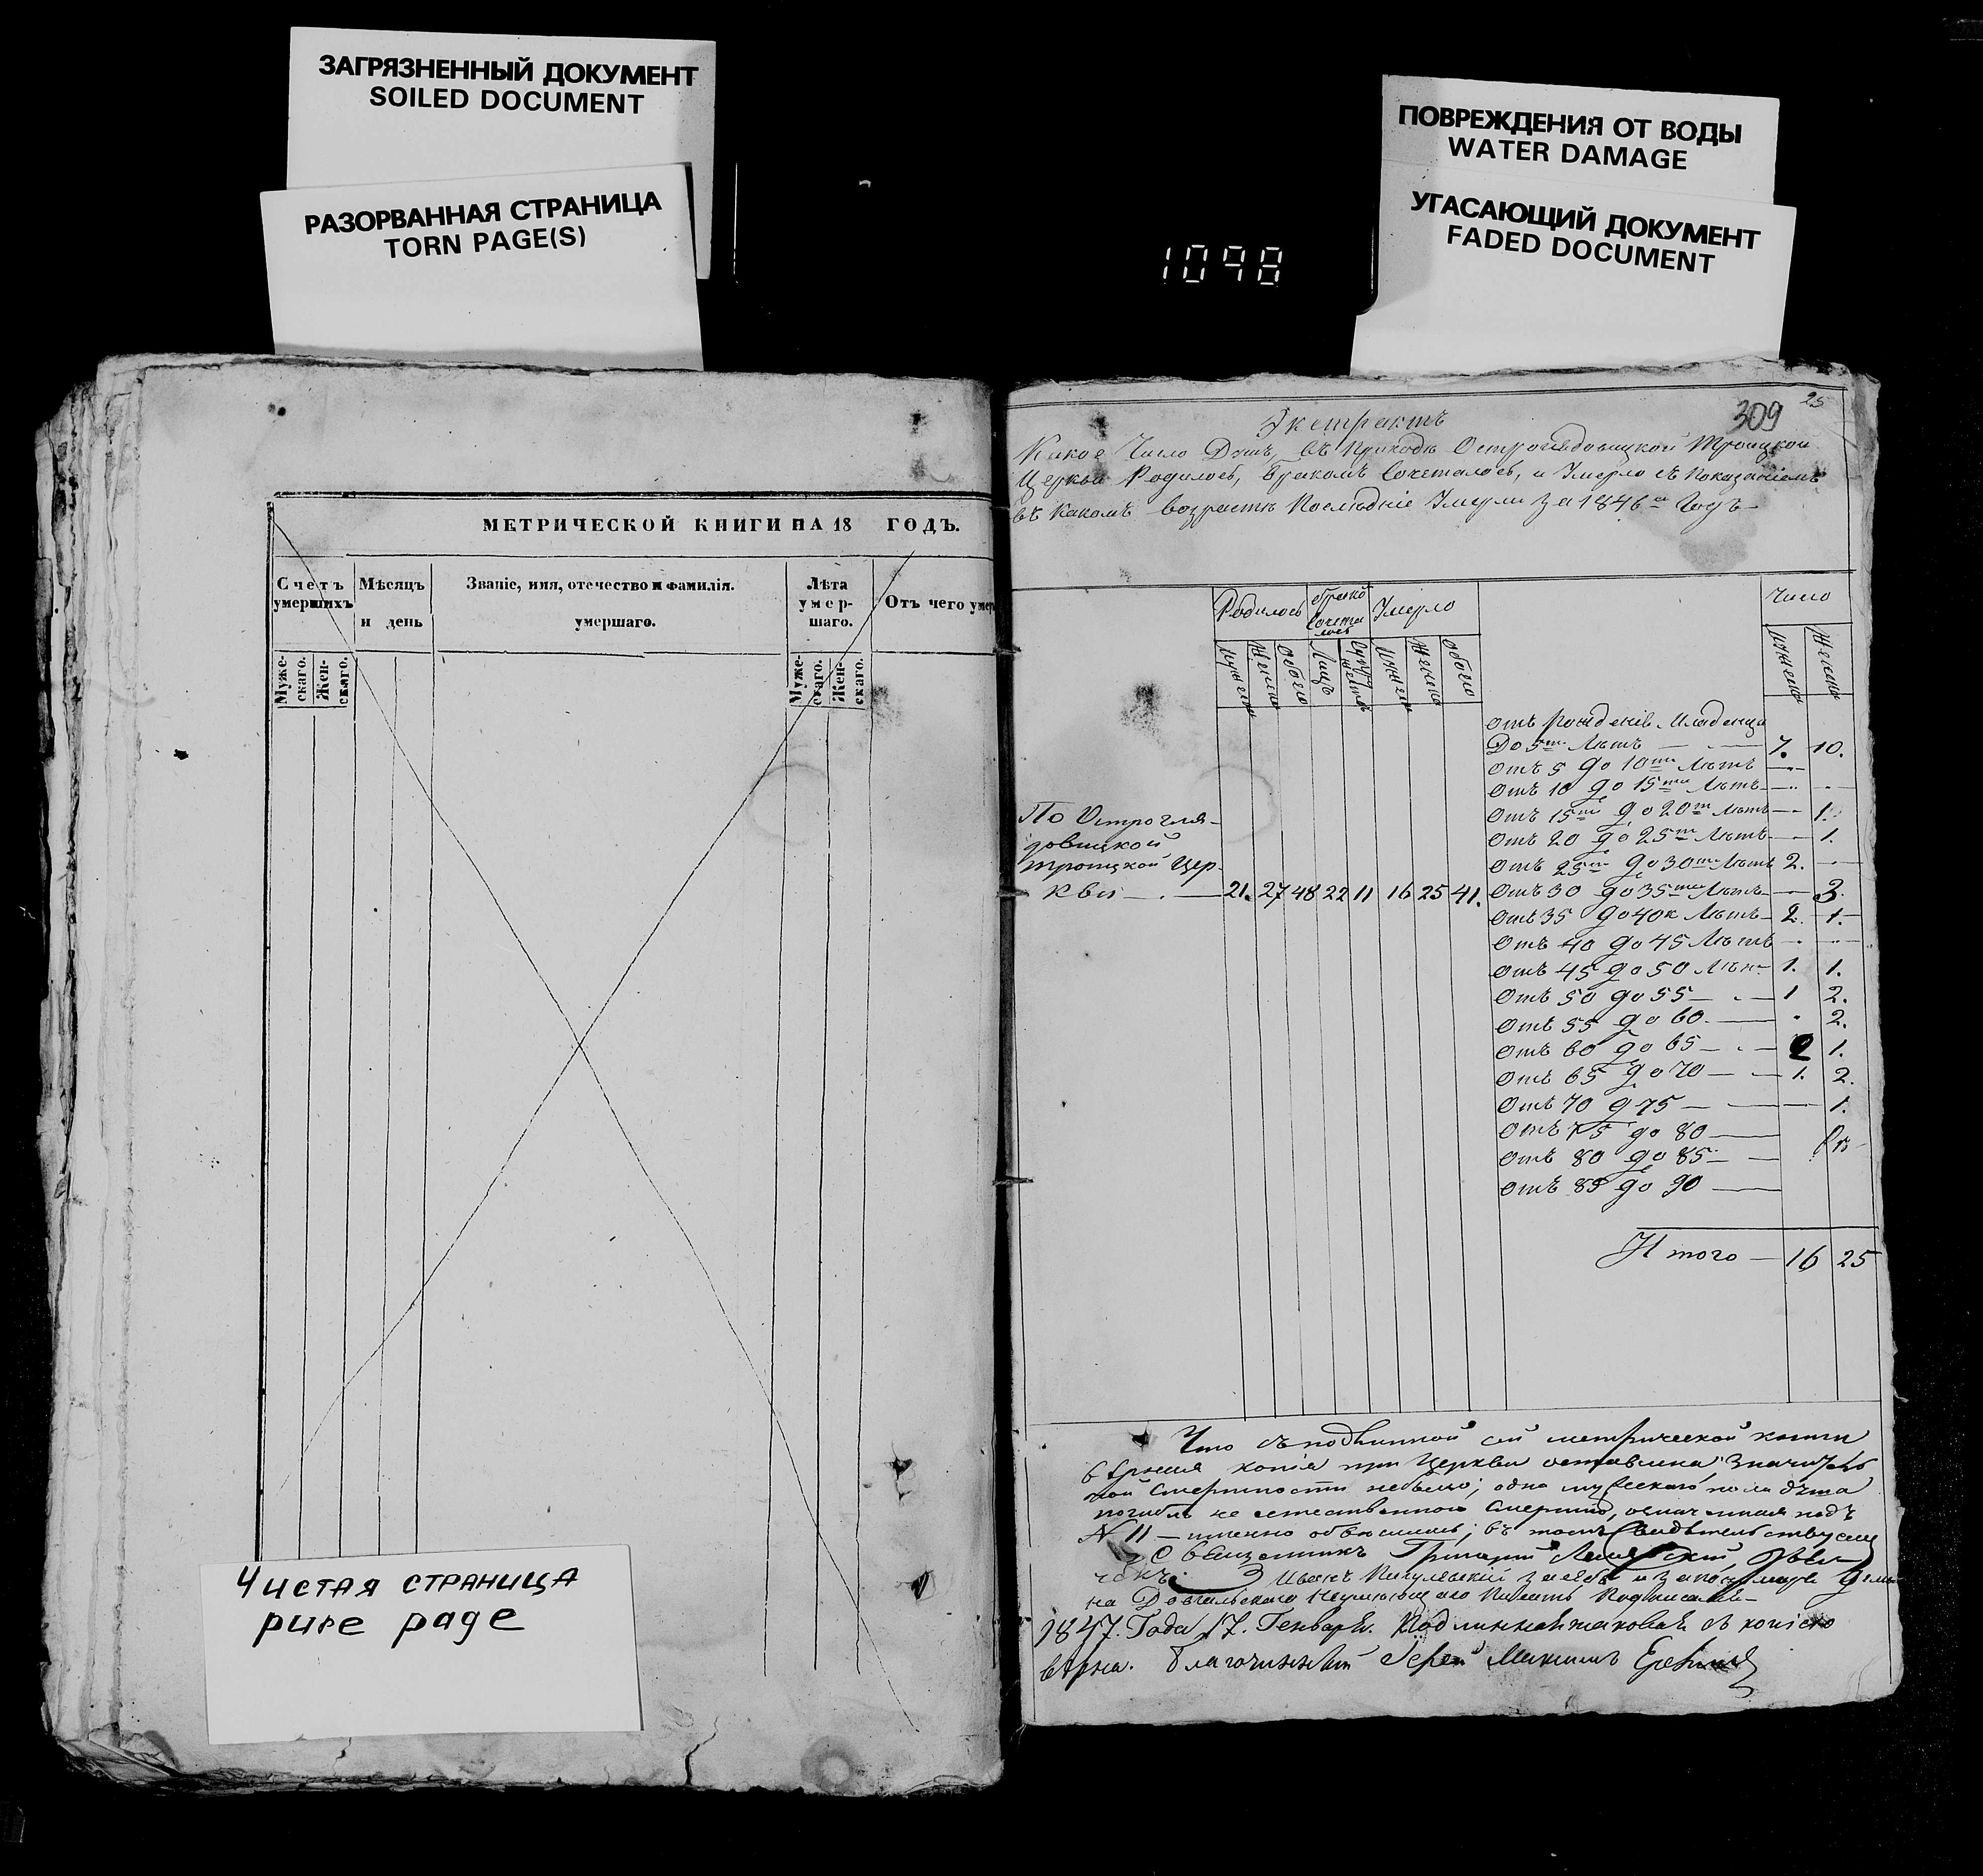 ЗАГРЯЗНЕННЫЙ ДОКУМЕНТ
SOILED DOCUMENT
РАЗОРВАННАЯ СТРАНИЦА
TORN PAGE(S)
ПОВРЕЖДЕНИЯ ОТ ВОДЫ
WATER DAMAGE
УГАСАЮЩИЙ ДОКУМЕНТ
FADED DOCUMENT
1098
МЕТРИЧЕСКОЙ КНИГИ НА 18 ГОДЪ.
Счетъ умершихъ
Мѣсяцъ и день
Званіе, имя, отечество и фамилія умершаго.
Лѣта умер-шаго.
Отъ чего умер
Муже-скаго.
Жен-скаго.
Муже-скаго.
Жен-скаго.
Чистая страница
pure page
309 25
Экстрактъ
Какое Число Душъ въ Приходѣ Острогядовицкой Троицкой
Церкви Родилось, Бракомъ Сочеталось, и Умерло съ Показаніемъ
въ Какомъ возрастѣ Послѣдніе Умерли за 1846й Годъ
Родилось
Сочеталось
Умерло
Число
Обоего
Лицъ
Обоего
ПоОстрогля-
довицкой
Троицкой Цер-
кви — 21. 27 48 22 11 16 25 41.
отъ Рожденія Младенца
До 5ти Лѣтъ — 7. 10.
Отъ 5 до 10ти Лѣтъ —
Отъ 10 до 15ти Лѣтъ —
Отъ 15ти до 20ти Лѣтъ — 1.
Отъ 20 до 25ти Лѣтъ — 1.
Отъ 25ти до 30ти Лѣтъ 2. —
Отъ 30 до 35ти Лѣтъ — 3.
Отъ 35 до 40к Лѣтъ 2. 1.
Отъ 40 до 45 Лѣтъ —
Отъ 45 до 50 Лѣтъ 1. 1.
Отъ 50 до 55 — 1 2.
Отъ 55 до 60 — 2.
Отъ 60 до 65 — 2 1.
Отъ 65 до 70 — 1. 2.
Отъ 70 д 75 — 1.
Отъ 75 до 80 —
Отъ 80 до 85 —
Отъ 85 до 90 —
Итого — 16 25
Что съ подлинной сей метрической книги
вѣрная копія при Церкви оставлена, значитель
ной Смертности небыло; одно мужескаго пола дѣтя
погибло не естественною Смертію, означенная подъ
N 11 — въ томъ свидѣтельствуемъ
Священникъ Григорій
Иванъ
на Писать Подписалъ
1847. Года 17. Генваря. Подлинная таковая съ копіею
вѣрна. Благочинный Іерей Максимъ